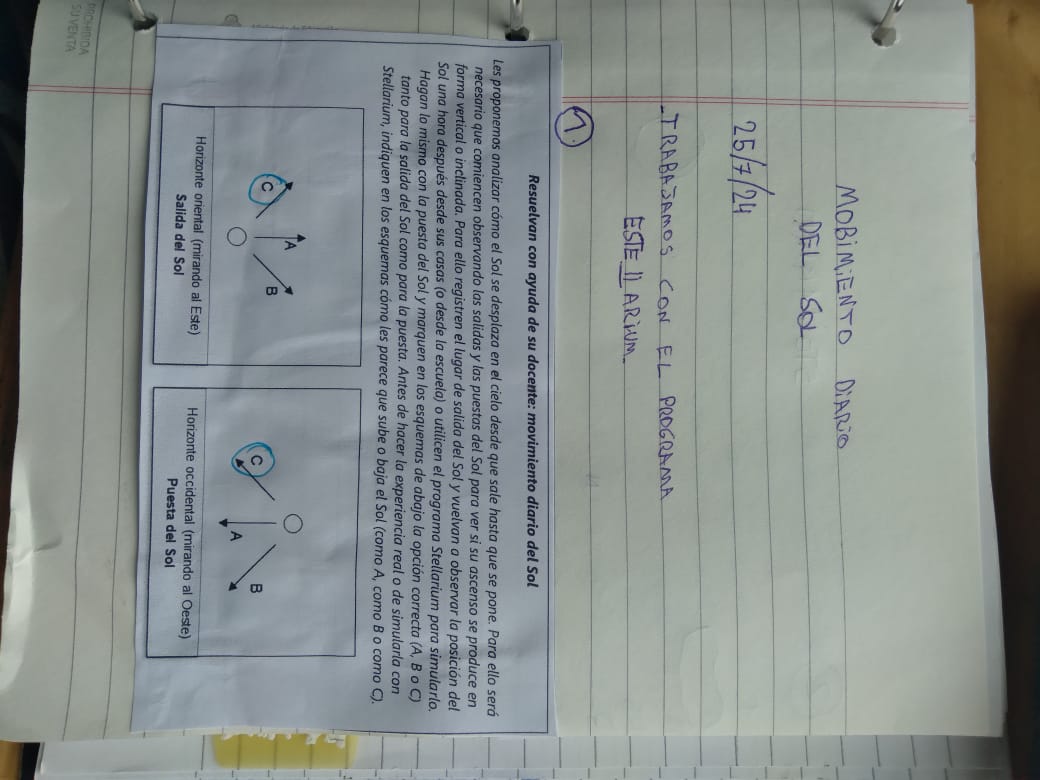 MOBIMIENTO DIARIO
DEL SOL
25/7/24
-TRABAJAMOS CON EL PROGRAMA
ESTE II ARIUM.
1
Resuelvan con ayuda de su docente: movimiento diario del Sol
Les proponemos analizar cómo el Sol se desplaza en el cielo desde que sale hasta que se pone. Para ello será
necesario que comiencen observando las salidas y las puestas del Sol para ver si su ascenso se produce en
forma vertical o inclinada. Para ello registren el lugar de salida del Sol y vuelvan a observar la posición del
Sol una hora después desde sus casas (o desde la escuela) o utilicen el programa Stellarium para simularlo.
Hagan lo mismo con la puesta del Sol y marquen en los esquemas de abajo la opción correcta (A, B o C)
tanto para la salida del Sol como para la puesta. Antes de hacer la experiencia real o de simularla con
Stellarium, indiquen en los esquemas cómo les parece que sube o baja el Sol (como A, como B o como C).
C
A
B
Horizonte oriental (mirando al Este)
Salida del Sol
C
A
B
Horizonte occidental (mirando al Oeste)
Puesta del Sol
PROHIBIDA
SU VENTA